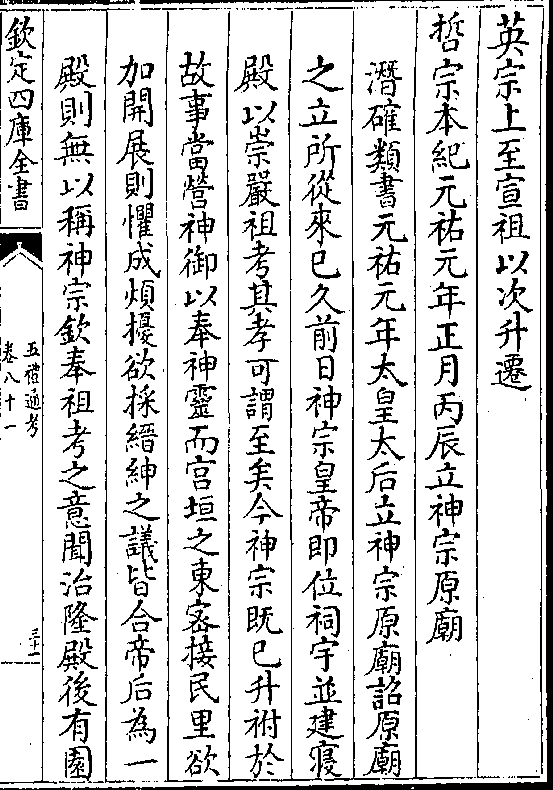 英宗上至宣祖以次升遷
哲宗本紀元祐元年正月丙辰立神宗原廟
潛確類書元祐元年太皇太后立神宗原廟詔原廟
之立所從來已久前日神宗皇帝即位祠宇並建寢
殿以崇嚴祖考其孝可謂至矣今神宗既已升祔於
故事當營神御以奉神靈而宫垣之東宻接民里欲
加開展則懼成煩擾欲採縉紳之議皆合帝后為一
殿則無以稱神宗欽奉祖考之意聞治隆殿後有園
欽定四庫全書
五禮通考
卷八十一
三十一